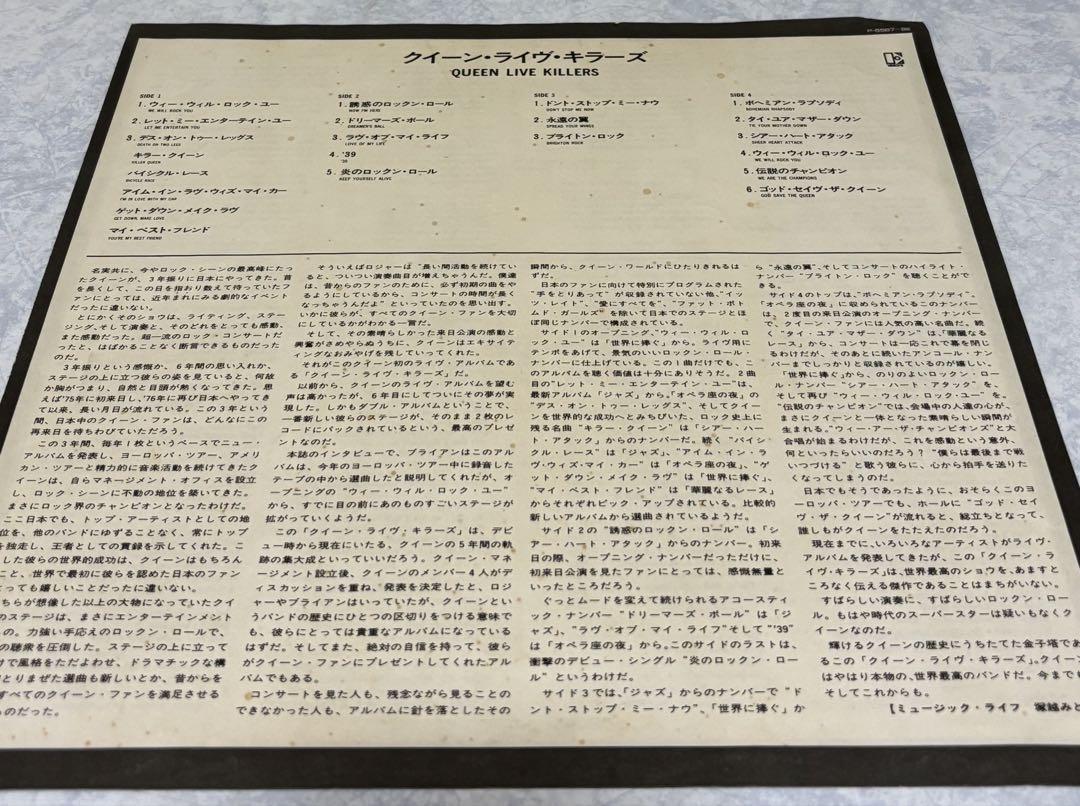 P-5567
クイーン・ライヴ・キラーズ
QUEEN LIVE KILLERS
SIDE 1
1. ウィー・ウィル・ロック・ユー
WE WILL ROCK YOU
2. レット・ミー・エンターテイン・ユー
LET ME ENTERTAIN YOU
3. デス・オン・トゥー・レッグス
DEATH ON TWO LEGS
キラー・クイーン
KILLER QUEEN
バイシクル・レース
BICYCLE RACE
アイム・イン・ラヴ・ウィズ・マイ・カー
I'M IN LOVE WITH MY CAR
ゲット・ダウン・メイク・ラヴ
GET DOWN, MAKE LOVE
マイ・ベスト・フレンド
YOU'RE MY BEST FRIEND
SIDE 2
1. 誘惑のロックン・ロール
NOW I'M HERE
2. ドリーマーズ・ボール
DREAMER'S BALL
3. ラヴ・オブ・マイ・ライフ
LOVE OF MY LIFE
4. '39
'39
5. 炎のロックン・ロール
KEEP YOURSELF ALIVE
SIDE 3
1. ドント・ストップ・ミー・ナウ
DON'T STOP ME NOW
2. 永遠の翼
SPREAD YOUR WINGS
3. ブライトン・ロック
BRIGHTON ROCK
SIDE 4
1. ボヘミアン・ラプソディ
BOHEMIAN RHAPSODY
2. タイ・ユア・マザー・ダウン
TIE YOUR MOTHER DOWN
3. シアー・ハート・アタック
SHEER HEART ATTACK
4. ウィー・ウィル・ロック・ユー
WE WILL ROCK YOU
5. 伝説のチャンピオン
WE ARE THE CHAMPIONS
6. ゴッド・セイヴ・ザ・クイーン
GOD SAVE THE QUEEN
名実共に、今やロック・シーンの最高峰にた
ったクイーンが、3年振りに日本にやってきた。首
を長くして、この日を指おり数えて待っていたフ
ァンにとっては、近年まれにみる劇的なイベント
だったに違いない。
とにかくそのショウは、ライティング、ステー
ジング、そして演奏と、そのどれをとっても感動、
また感動だった。超一流のロック・コンサートだ
ったと、はばかることなく断言できるものだった
のだ。
3年振りという感慨か、6年間の思い入れか、
ステージの上に立つ彼らの姿を見ていると、何故
か胸がつまり、自然と目頭が熱くなってきた。思
えば'75年に初来日し、'76年に再び日本へやってき
て以来、長い月日が流れている。この3年という
間、日本中のクイーン・ファンは、どんなにこの
再来日を待ちわびていただろう。
この3年間、毎年1枚というペースでニュー・
アルバムを発表し、ヨーロッパ・ツアー、アメリ
カン・ツアーと精力的に音楽活動を続けてきたク
イーンは、自らマネージメント・オフィスを設立
し、ロック・シーンに不動の地位を築いてきた。
まさにロック界のチャンピオンとなったわけだ。
ここ日本でも、トップ・アーティストとしての地
位を、他のバンドにゆずることなく、常にトップ
を独走し、王者としての貫録を示してくれた。こ
した彼らの世界的成功は、クイーンはもちろん
こと、世界で最初に彼らを認めた日本のファン
っても嬉しいことだったに違いない。
ちらが想像した以上の大物になっていたクイ
のステージは、まさにエンターテインメント
の。力強い手応えのロックン・ロールで、
の聴衆を圧倒した。ステージの上に立って
で風格をただよわせ、ドラマチックな構
とりまぜた選曲も新しいとか、昔からを
すべてのクイーン・ファンを満足させる
ものだった。
そういえばロジャーは"長い間活動を続けてい
ると、ついつい演奏曲目が増えちゃうんだ。僕達
は、昔からのファンのために、必ず初期の曲をや
るようにしているから、コンサートの時間が長く
なっちゃうんだよ"といっていたのを思い出す。
いかに彼らが、すべてのクイーン・ファンを大切
にしているかがわかる一言だ。
そして、その素晴らしかった来日公演の感動と
興奮がさめやらぬうちに、クイーンはエキサイテ
ィングなおみやげを残していってくれた。
それがこのクイーン初のライヴ・アルバムであ
る「クイーン・ライヴ・キラーズ」だ。
以前から、クイーンのライヴ・アルバムを望む
声は高かったが、6年目にしてついにその夢が実
現した。しかもダブル・アルバムということで、
一番新しい彼らのステージが、そのまま2枚のレ
コードにパックされているという、最高のプレゼ
ントなのだ。
本誌のインタビューで、ブライアンはこのアル
バムは、今年のヨーロッパ・ツアー中に録音した
テープの中から選曲したと説明してくれたが、オ
ープニングの「ウィー・ウィル・ロック・ユー」
から、すでに目の前にあのものすごいステージが
拡がっていくようだ。
この「クイーン・ライヴ・キラーズ」は、デビ
ュー時から現在にいたる、クイーンの5年間の軌
跡の集大成といっていいだろう。クイーン・マネ
ージメント設立後、クイーンのメンバー4人がデ
ィスカッションを重ね、発表を決定したと、ロジ
ャーやブライアンはいっていたが、クイーンとい
うバンドの歴史にひとつの区切りをつける意味で
も、彼らにとっては貴重なアルバムになっている
はずだ。そしてまた、絶対の自信を持って、彼ら
がクイーン・ファンにプレゼントしてくれたアル
バムでもある。
コンサートを見た人も、残念ながら見ることの
できなかった人も、アルバムに針を落としたその
瞬間から、クイーン・ワールドにひたりきれるは
ずだ。
日本のファンに向けて特別にプログラムされた
"手をとりあって"が収録されていない他、"イッ
ツ・レイト"、"愛にすべてを"、"ファット・ボト
ムド・ガールズ"を除いて日本でのステージとほ
ぼ同じナンバーで構成されている。
サイド1のオープニング、"ウィー・ウィル・ロ
ック・ユー"は「世界に捧ぐ」から。ライヴ用に
テンポをあげて、景気のいいロックン・ロール・
ナンバーに仕上げている。この1曲だけでも、こ
のアルバムを聴く価値は十分にありそうだ。2曲
目の"レット・ミー・エンターテイン・ユー"は、
最新アルバム「ジャズ」から。「オペラ座の夜」の
"デス・オン・トゥー・レッグス"、そしてクイー
ンを世界的な成功へとみちびいた、ロック史上に
残る名曲"キラー・クイーン"は「シアー・ハー
ト・アタック」からのナンバーだ。続く"バイシ
クル・レース"は「ジャズ」、"アイム・イン・ラ
ヴ・ウィズ・マイ・カー"は「オペラ座の夜」、"ゲ
ット・ダウン・メイク・ラヴ"は「世界に捧ぐ」、
"マイ・ベスト・フレンド"は「華麗なるレース」
からそれぞれピック・アップされている。比較的
新しいアルバムから選曲されているようだ。
サイド2の"誘惑のロックン・ロール"は「シ
アー・ハート・アタック」からのナンバー。初来
日の際、オープニング・ナンバーだっただけに、
初来日公演を見たファンにとっては、感慨無量と
いったところだろう。
ぐっとムードを変えて続けられるアコースティ
ック・ナンバー"ドリーマーズ・ボール"は「ジ
ャズ」、"ラヴ・オブ・マイ・ライフ"そして"'39"
は「オペラ座の夜」から。このサイドのラストは、
衝撃のデビュー・シングル"炎のロックン・ロー
ル"というわけだ。
サイド3では、「ジャズ」からのナンバーで"ド
ント・ストップ・ミー・ナウ"、「世界に捧ぐ」か
ら"永遠の翼"、そしてコンサートのハイライト・
ナンバー"ブライトン・ロック"を聴くことがで
きる。
サイド4のトップは、"ボヘミアン・ラプソディ"。
「オペラ座の夜」に収められているこのナンバー
は、2度目の来日公演のオープニング・ナンバー
で、クイーン・ファンには人気の高い名曲だ。続
く"タイ・ユア・マザー・ダウン"は、「華麗なる
レース」から。コンサートは一応これで幕を閉じ
るわけだが、そのあとに続いたアンコール・ナン
バーまでしっかりと収録されているのが嬉しい。
「世界に捧ぐ」から、のりのよいロックン・ロー
ル・ナンバー"シアー・ハート・アタック"を、
そして再び"ウィー・ウィル・ロック・ユー"を。
"伝説のチャンピオン"では、会場中の人達の心が、
まさにクイーンと一体となった素晴らしい瞬間が
生まれる。"ウィー・アー・ザ・チャンピオンズ"と大
合唱が始まるわけだが、これを感動という意外、
何といったらいいのだろう？"僕らは最後まで戦
いつづける"と歌う彼らに、心から拍手を送りた
くなってしまうのだ。
日本でもそうであったように、おそらくこのヨ
ーロッパ・ツアーでも、ホールに"ゴッド・セイ
ヴ・ザ・クイーン"が流れると、総立ちとなって、
誰しもがクイーンをたたえたのだろう。
現在までに、いろいろなアーティストがライヴ・
アルバムを発表してきたが、この「クイーン・ラ
イヴ・キラーズ」は、世界最高のショウを、あますと
ころなく伝える傑作であることはまちがいない。
すばらしい演奏に、すばらしいロックン・ロー
ル。もはや時代のスーパースターは疑いもなくク
イーンなのだ。
輝けるクイーンの歴史にうちたてた金子塔であ
るこの「クイーン・ライヴ・キラーズ」。クイーン
はやはり本物の、世界最高のバンドだ。今まで
そしてこれからも。
【ミュージック・ライフ 塚越みと